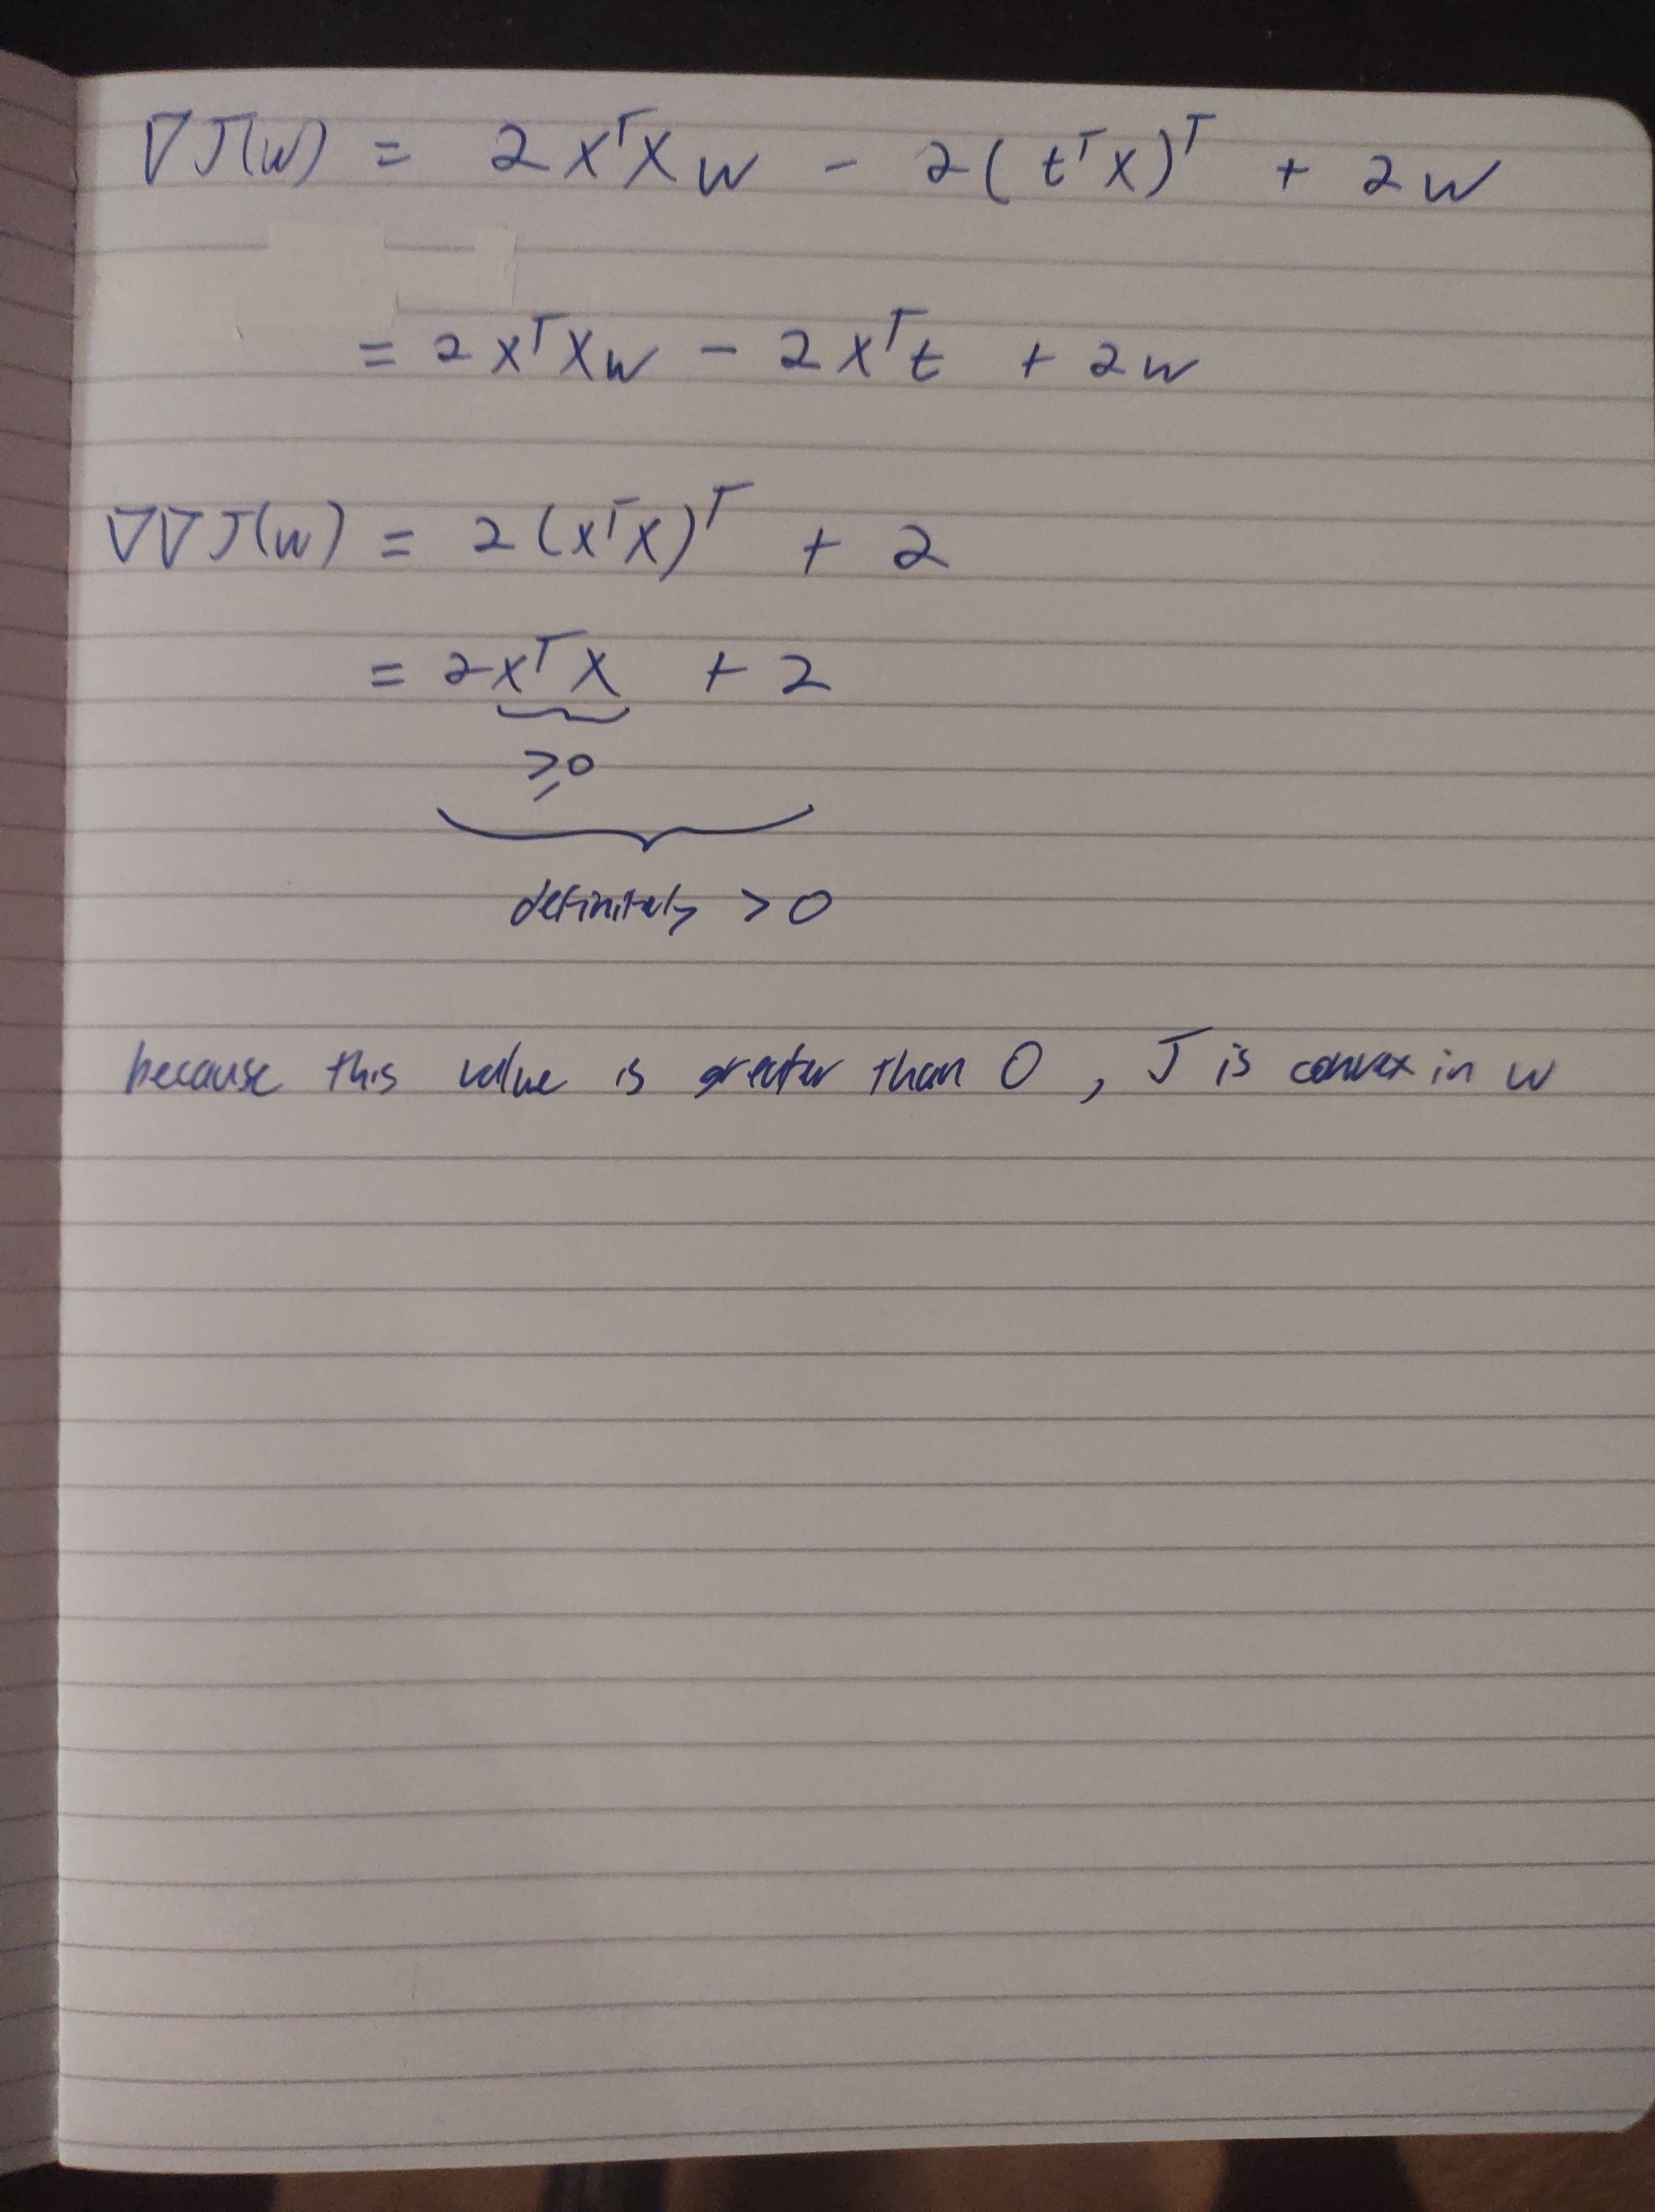 ∇J(w) = 2xᵀxw - 2(tᵀx)ᵀ + 2w
= 2xᵀxw - 2xᵀt + 2w
∇∇J(w) = 2(xᵀx)ᵀ + 2
= 2xᵀx + 2
≥0
definitely >0
because this value is greater than 0, J is convex in w